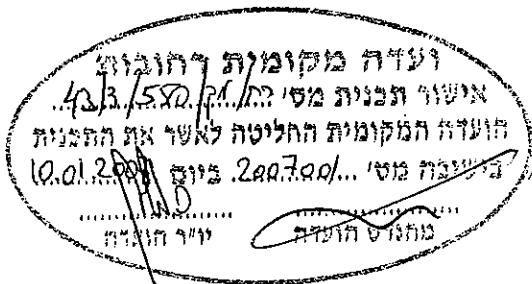 ועדה מקומית רחובות
אישור תכנית מס׳ רח/21/580/3/43
הועדה המקומית החליטה לאשר את התכנית
בישיבה מס׳ 200700/ ביום 10.01.200
מהנדס הועדה יו״ר הועדה